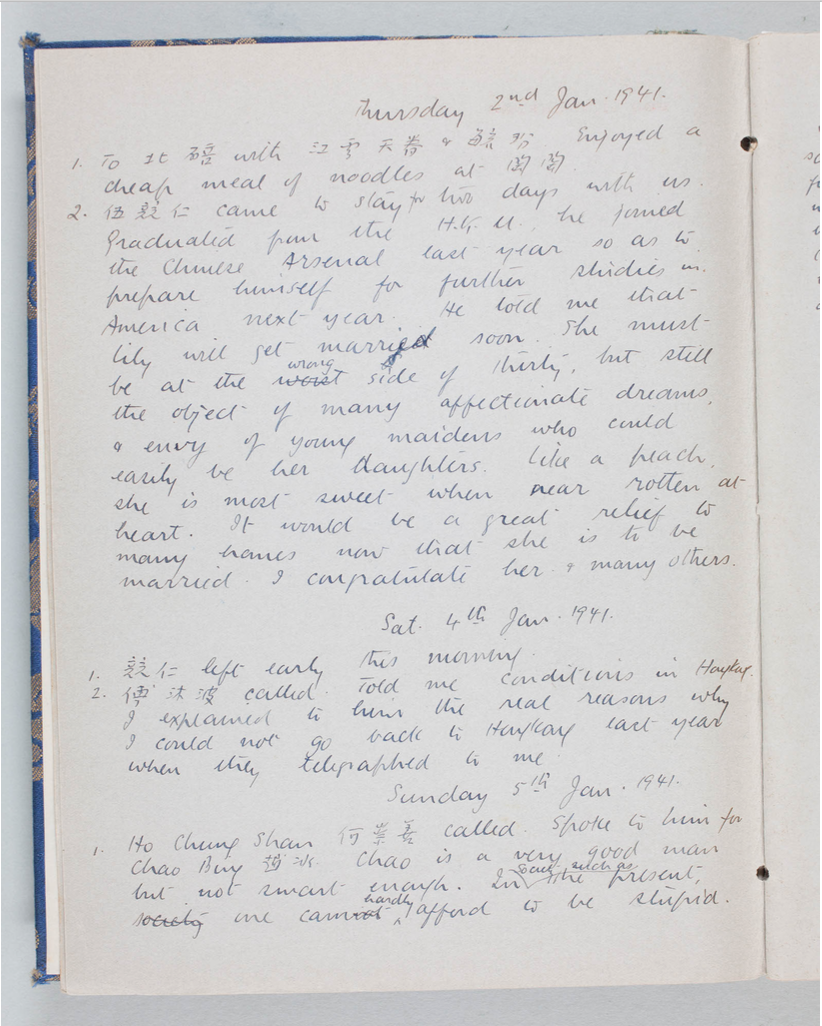 Thursday 2nd Jan. 1941.
1. To 北碚 with 江雲天 & Enjoyed a
cheap meal of noodles at
2. 伍競仁 came to stay for two days with us.
Graduated from the H.K.U., he joined
the Chinese Arsenal last year so as to
prepare himself for further studies in
America next year. He told me that
Lily will get married soon. She must
be at the worst wrong side of thirty, but still
the object of many affectionate dreams,
& envy of young maidens who could
easily be her daughters. Like a peach,
she is most sweet when near rotten at
heart. It would be a great relief to
many homes now that she is to be
married. I congratulate her & many others.
Sat. 4th Jan. 1941.
1. 競仁 left early this morning.
2. 傅沐波 called. Told me conditions in HongKong.
I explained to him the real reasons why
I could not go back to HongKong last year
when they telegraphed to me.
Sunday 5th Jan. 1941.
1. Ho Chung Shan 何崇善 called. Spoke to him for
Chao Bing 趙冰. Chao is a very good man
but not smart enough. In such as the present,
society one cannot hardly afford to be stupid.